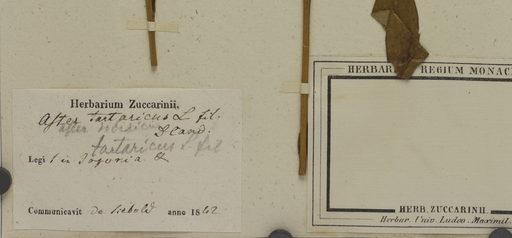 Herbarium Zuccarinii.
Aster tartaricus L fil.
Aster
tartaricus L fil
Legi in Japonia &
Communicavit de Siebold anno 1842
HERBAR REGIUM MONAC
HERB. ZUCCARINII.
Herbar. Univ. Ludov. Maximil.